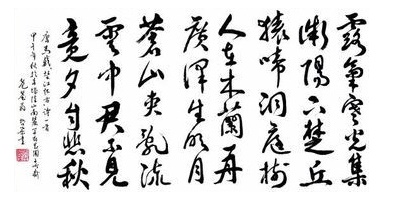 露氣寒光集
微陽下楚丘
猿啼洞庭樹
人在木蘭舟
廣澤生明月
蒼山夾亂流
雲中君不見
竟夕自悲秋
唐馬戴楚江懷古詩一首
甲午年秋於